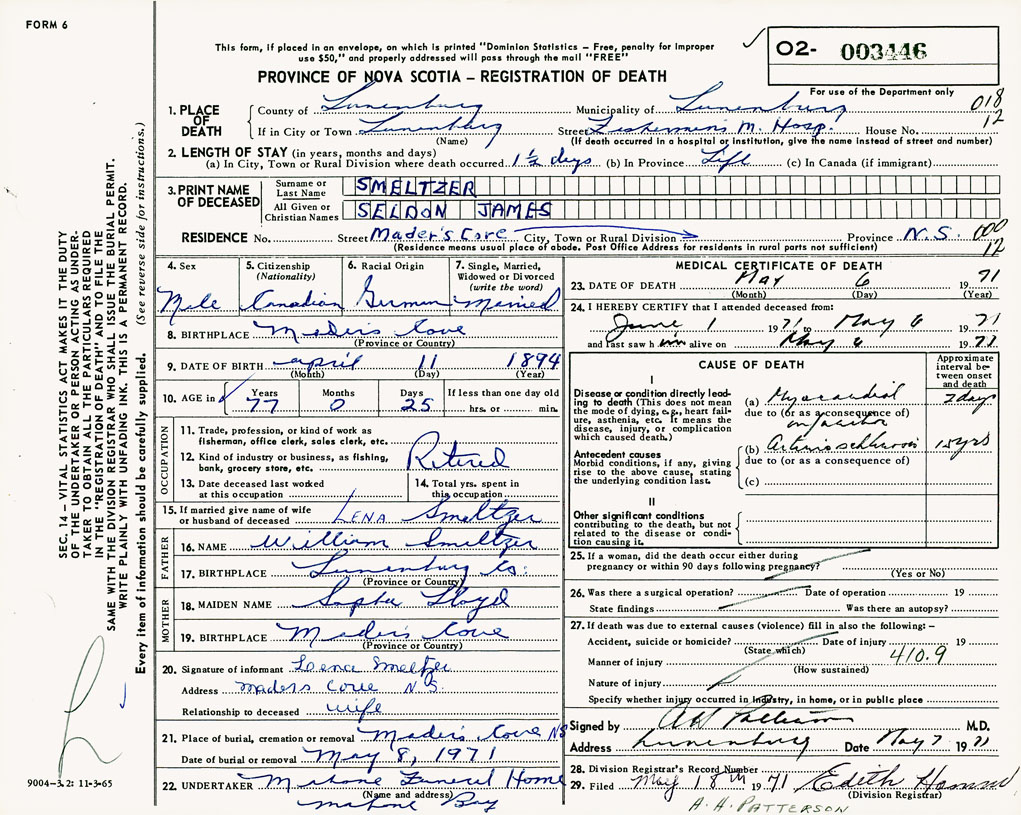 FORM 6
This form, if placed in an envelope, on which is printed "Dominion Statistics – Free, penalty for improper
use $50," and properly addressed will pass through the mail "FREE"
PROVINCE OF NOVA SCOTIA – REGISTRATION OF DEATH
02- 003446
For use of the Department only
018
12
1. PLACE OF DEATH
County of Lunenburg Municipality of Lunenburg
If in City or Town Lunenburg Street Fishermen's M. Hosp. House No.
(Name) (If death occurred in a hospital or institution, give the name instead of street and number)
2. LENGTH OF STAY (in years, months and days)
(a) In City, Town or Rural Division where death occurred 1½ days (b) In Province Life (c) In Canada (if immigrant)
3. PRINT NAME OF DECEASED
Surname or Last Name SMELTZER
All Given or Christian Names SELDON JAMES
RESIDENCE No. Street Mader's Cove City, Town or Rural Division Province N.S. 000
12
(Residence means usual place of abode. Post Office Address for residents in rural parts not sufficient)
4. Sex
Male
5. Citizenship
(Nationality)
Canadian
6. Racial Origin
German
7. Single, Married,
Widowed or Divorced
(write the word)
Married
8. BIRTHPLACE Mader's Cove
(Province or Country)
9. DATE OF BIRTH april 11 1894
(Month) (Day) (Year)
10. AGE in
Years Months Days If less than one day old
77 0 25 hrs. or min.
OCCUPATION
11. Trade, profession, or kind of work as
fisherman, office clerk, sales clerk, etc.
12. Kind of industry or business, as fishing,
bank, grocery store, etc.
Retired
13. Date deceased last worked
at this occupation
14. Total yrs. spent in
this occupation
15. If married give name of wife
or husband of deceased LENA Smeltzer
FATHER
16. NAME William Smeltzer
17. BIRTHPLACE Lunenburg Co:
(Province or Country)
MOTHER
18. MAIDEN NAME Lloyd
19. BIRTHPLACE Mader's Cove
(Province or Country)
20. Signature of informant Lena Smeltzer
Address Maders Cove N.S.
Relationship to deceased wife
21. Place of burial, cremation or removal Mader's Cove NS
Date of burial or removal May 8, 1971
22. UNDERTAKER Mahone Funeral Home
(Name and address)
Mahone Bay
MEDICAL CERTIFICATE OF DEATH
23. DATE OF DEATH May 6 1971
(Month) (Day) (Year)
24. I HEREBY CERTIFY that I attended deceased from:
June 1 1971 to May 6 1971
and last saw him alive on May 6 1971
CAUSE OF DEATH
Approximate
interval be-
tween onset
and death
I
Disease or condition directly lead-
ing to death (This does not mean
the mode of dying, e.g., heart fail-
ure, asthenia, etc. It means the
disease, injury, or complication
which caused death.)
(a) Myocardial
due to (or as a consequence of)
infarction
2 days
Antecedent causes
Morbid conditions, if any, giving
rise to the above cause, stating
the underlying condition last.
(b) Arteriosclerosis
due to (or as a consequence of)
15 yrs
(c)
II
Other significant conditions
contributing to the death, but not
related to the disease or condi-
tion causing it.
25. If a woman, did the death occur either during
pregnancy or within 90 days following pregnancy?
(Yes or No)
26. Was there a surgical operation? Date of operation 19
State findings Was there an autopsy?
27. If death was due to external causes (violence) fill in also the following:–
Accident, suicide or homicide? Date of injury 19
(State which)
Manner of injury 410.9
(How sustained)
Nature of injury
Specify whether injury occurred in industry, in home, or in public place
Signed by M.D.
Address Lunenburg Date May 7 1971
28. Division Registrar's Record Number
29. Filed May 18th 1971 Edith
(Division Registrar)
A. H. PATTERSON
SEC. 14 – VITAL STATISTICS ACT MAKES IT THE DUTY
OF THE UNDERTAKER OR PERSON ACTING AS UNDER-
TAKER TO OBTAIN ALL THE PARTICULARS REQUIRED
IN THE "REGISTRATION OF DEATH" AND TO FILE THE
SAME WITH THE DIVISION REGISTRAR WHO SHALL ISSUE THE BURIAL PERMIT.
WRITE PLAINLY WITH UNFADING INK. THIS IS A PERMANENT RECORD.
Every item of information should be carefully supplied. (See reverse side for instructions.)
9004-3.2: 11-3-65